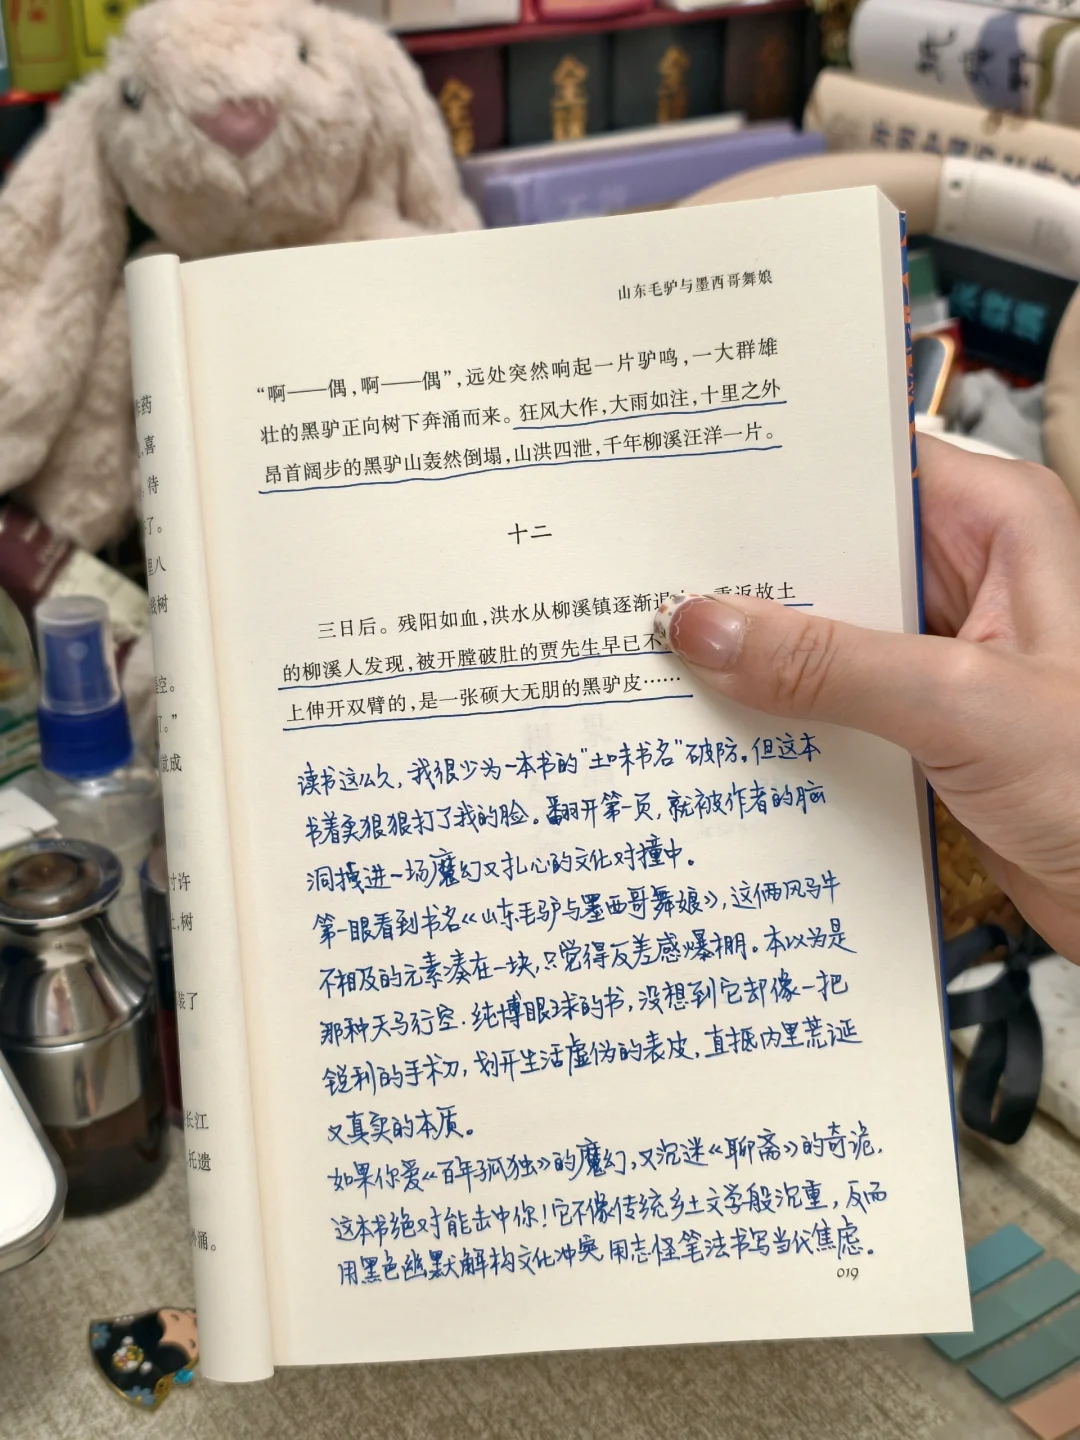 山东毛驴与墨西哥舞娘
“啊——偶，啊——偶”，远处突然响起一片驴鸣，一大群雄
壮的黑驴正向树下奔涌而来。狂风大作，大雨如注，十里之外
昂首阔步的黑驴山轰然倒塌，山洪四泄，千年柳溪汪洋一片。
十二
三日后。残阳如血，洪水从柳溪镇逐渐退 重返故土
的柳溪人发现，被开膛破肚的贾先生早已不
上伸开双臂的，是一张硕大无朋的黑驴皮……
读书这么久，我很少为一本书的“土味书名”破防。但这本
书着实狠狠打了我的脸。翻开第一页，就被作者的脑
洞拽进一场魔幻又扎心的文化对撞中。
第一眼看到书名《山东毛驴与墨西哥舞娘》，这俩风马牛
不相及的元素凑在一块，只觉得反差感爆棚。本以为是
那种天马行空．纯博眼球的书，没想到它却像一把
锐利的手术刀，划开生活虚伪的表皮，直抵内里荒诞
又真实的本质。
如果你爱《百年孤独》的魔幻，又沉迷《聊斋》的奇诡．
这本书绝对能击中你！它不像传统乡土文学般沉重，反而
用黑色幽默解构文化冲突 用志怪笔法书写当代焦虑。
019
药
喜
待
了。
里八
树
空。
了。”
成
许
树
装了
长江
托遗
涌。
全
全
全